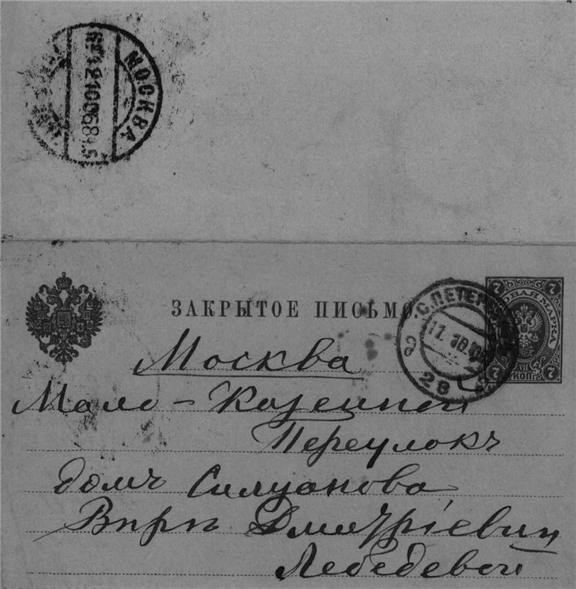 МОСКВА
ЗАКРЫТОЕ ПИСЬМО
С.ПЕТЕР
7 7
МАРКА
7 КОП. 7
28
Москва
Мало-Козенной
Переулокъ
домъ Силуанова
Вѣрѣ Дмитріевнѣ
Лебедевой